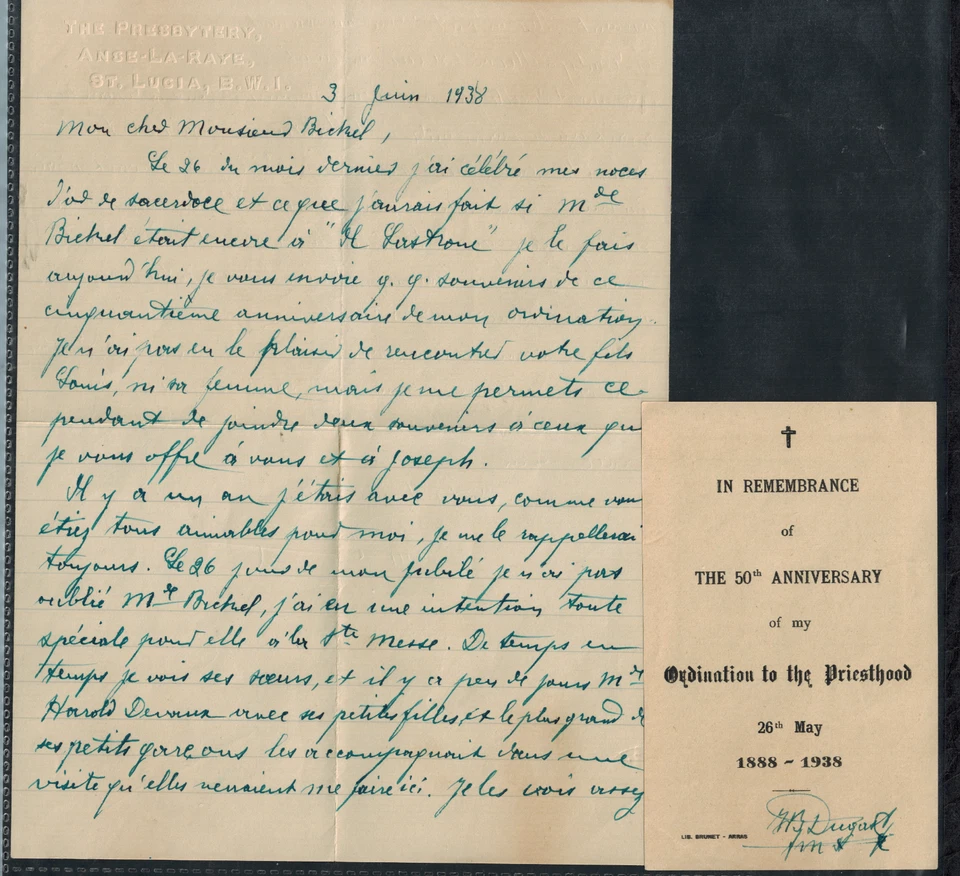 THE PRESBYTERY,
ANSE-LA-RAYE,
ST. LUCIA, B.W.I.
3 Juin 1938
Mon cher Monsieur Bickel,
Le 26 du mois dernier j'ai célébré mes noces
d'or de sacerdoce et ce que j'aurais fait si Mde
Bickel était encore à " " je le fais
aujourd'hui, je vous envoie q. q. souvenirs de ce
cinquantième anniversaire de mon ordination.
Je n'ai pas eu le plaisir de rencontrer votre fils
Louis, ni sa femme, mais je me permets ce-
pendant de joindre deux souvenirs à ceux que
je vous offre à vous et à Joseph.
Il y a un an j'étais avec vous, comme vous
étiez tous aimables pour moi, je me le rappellerai
toujours. Le 26 jour de mon jubilé je n'ai pas
oublié Mde Bickel, j'ai eu une intention toute
spéciale pour elle à la Ste Messe. De temps en
temps je vois ses sœurs, et il y a peu de jours Mde
Harold Devaux avec ses petites filles, et le plus grand de
ses petits garçons les accompagnait dans une
visite qu'elles venaient me faire ici. Je les vois assez
IN REMEMBRANCE
of
THE 50th ANNIVERSARY
of my
Ordination to the Priesthood
26th May
1888 - 1938
LIB. BRUNET - ARRAS